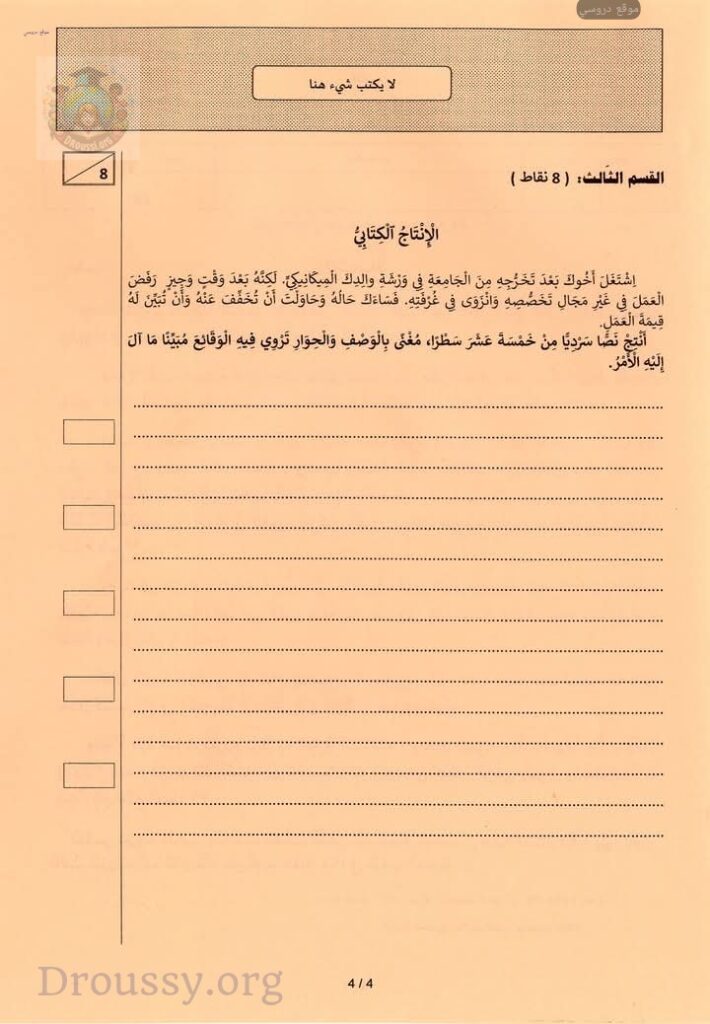 موقع دروسي
موقع دروسي
لا يكتب شيء هنا
DRoussi.org
8
القسم الثالث: ( 8 نقاط )
الْإِنْتَاجُ ٱلْكِتَابِيُّ
اِشْتَغَلَ أَخُوكَ بَعْدَ تَخَرُّجِهِ مِنَ الْجَامِعَةِ فِي وَرْشَةِ والِدِكَ الْمِيكَانِيكِيِّ. لَكِنَّهُ بَعْدَ وَقْتٍ وَجِيزٍ رَفَضَ
الْعَمَلَ فِي غَيْرِ مَجَالِ تَخَصُّصِهِ وَانْزَوَى فِي غُرْفَتِهِ. فَسَاءَكَ حَالُهُ وَحَاوَلْتَ أَنْ تُخَفِّفَ عَنْهُ وَأَنْ تُبَيِّنَ لَهُ
قِيمَةَ الْعَمَلِ.
أَنْتِجْ نَصًّا سَرْدِيًّا مِنْ خَمْسَةَ عَشَرَ سَطْرًا، مُغْنًى بِالْوَصْفِ وَالْحِوَارِ تَرْوِي فِيهِ الْوَقَائِعَ مُبَيِّنًا مَا آلَ
إِلَيْهِ الْأَمْرُ.
4 / 4
Droussy.org